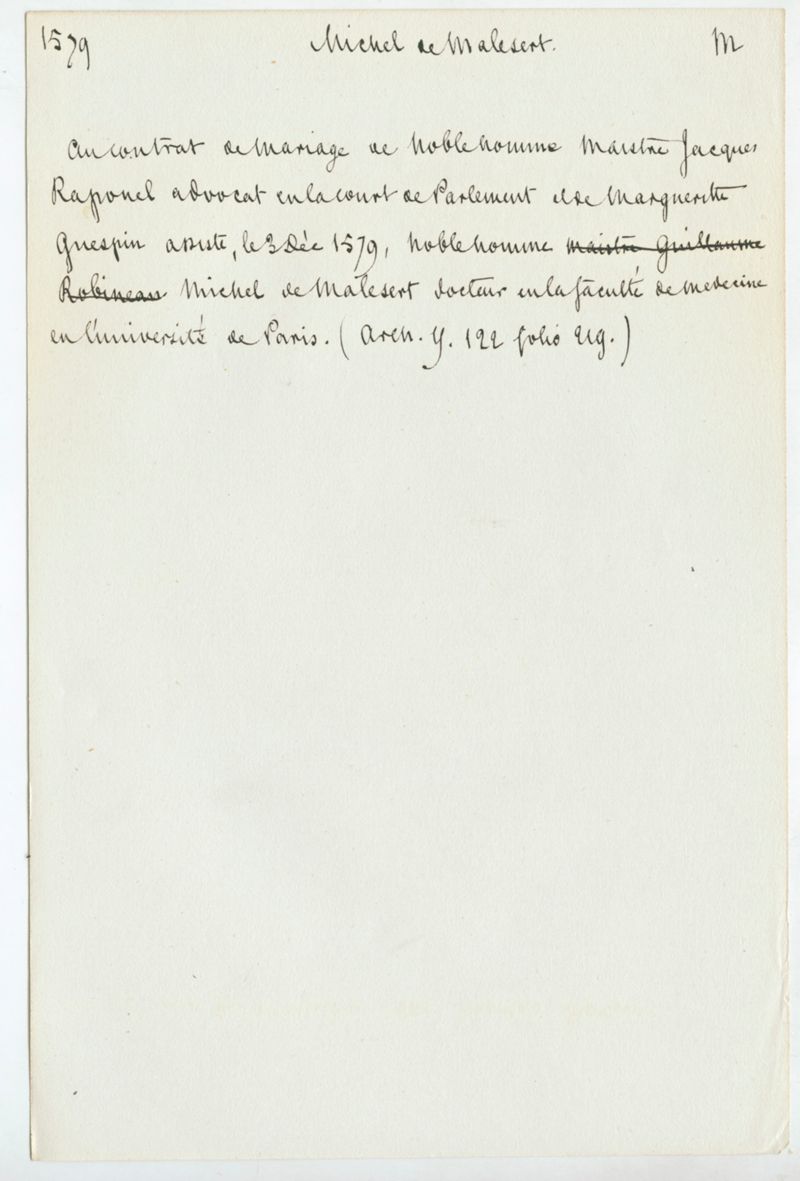 1579 Michel de Malesert. M
Au contrat de Mariage de Noble homme Maistre Jacques
Raponel advocat en la court de Parlement et de Marguerite
Guespin assiste, le 3 Déc 1579, Noble homme maistre Guillaume
Robineau Michel de Malesert docteur en la faculté de medecine
en l'université de Paris. (Arch. Y. 122 folio 219.)